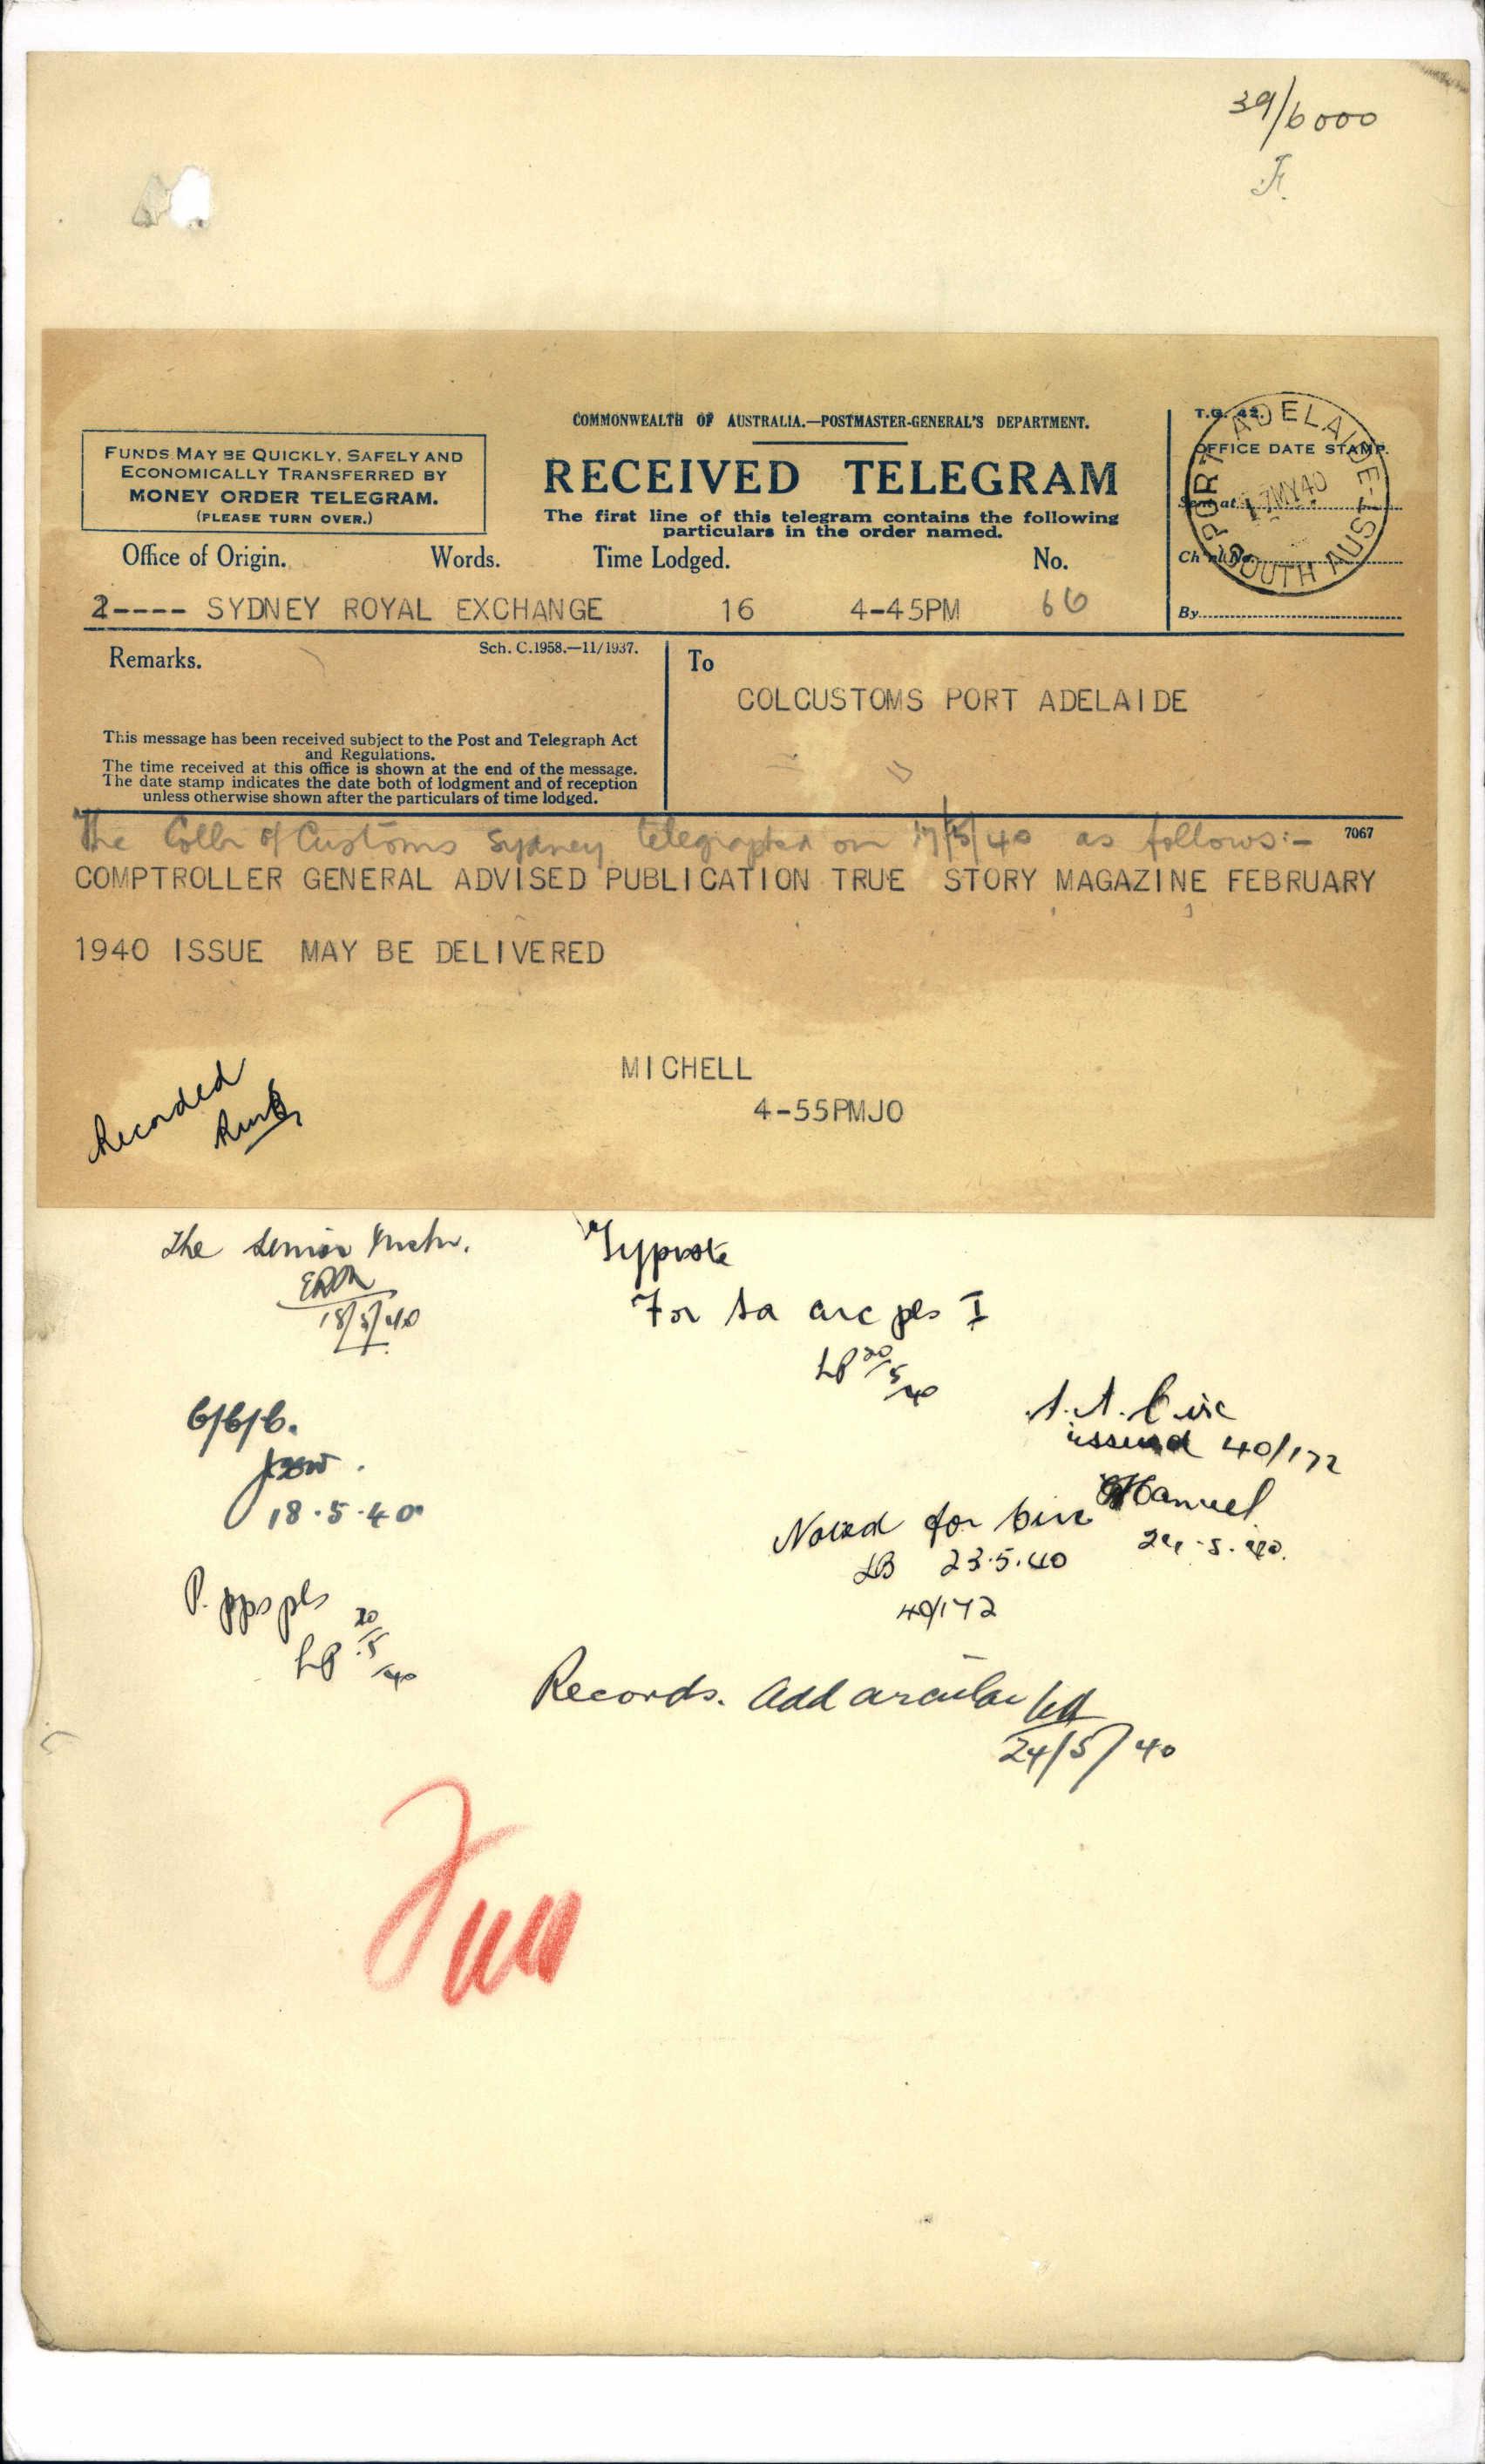 39/6000
COMMONWEALTH OF AUSTRALIA.—POSTMASTER-GENERAL'S DEPARTMENT.
FUNDS MAY BE QUICKLY, SAFELY AND
ECONOMICALLY TRANSFERRED BY
MONEY ORDER TELEGRAM.
(PLEASE TURN OVER.)
RECEIVED TELEGRAM
The first line of this telegram contains the following
particulars in the order named.
T.G. 42.
OFFICE DATE STAMP.
PORT ADELAIDE
17MY40
SOUTH AUST
Office of Origin. Words. Time Lodged. No.
By
2---- SYDNEY ROYAL EXCHANGE 16 4-45PM 66
Remarks.
Sch. C.1958.—11/1937.
To
COLCUSTOMS PORT ADELAIDE
This message has been received subject to the Post and Telegraph Act
and Regulations.
The time received at this office is shown at the end of the message.
The date stamp indicates the date both of lodgment and of reception
unless otherwise shown after the particulars of time lodged.
The Collr of Customs Sydney telegraphed on 17/5/40 as follows:-
7067
COMPTROLLER GENERAL ADVISED PUBLICATION TRUE STORY MAGAZINE FEBRUARY
1940 ISSUE MAY BE DELIVERED
MICHELL
4-55PMJO
Recorded
The Senior
18/5/40
6/6/6.
18.5.40
P. pps pls
LB 20/5/40
Typiste
For sa circ pls I
LB 20/5/40
S.A. Circ
issued 40/172
24.5.40.
Noted for Circ
LB 23.5.40
40/172
Records. Add circular
24/5/40